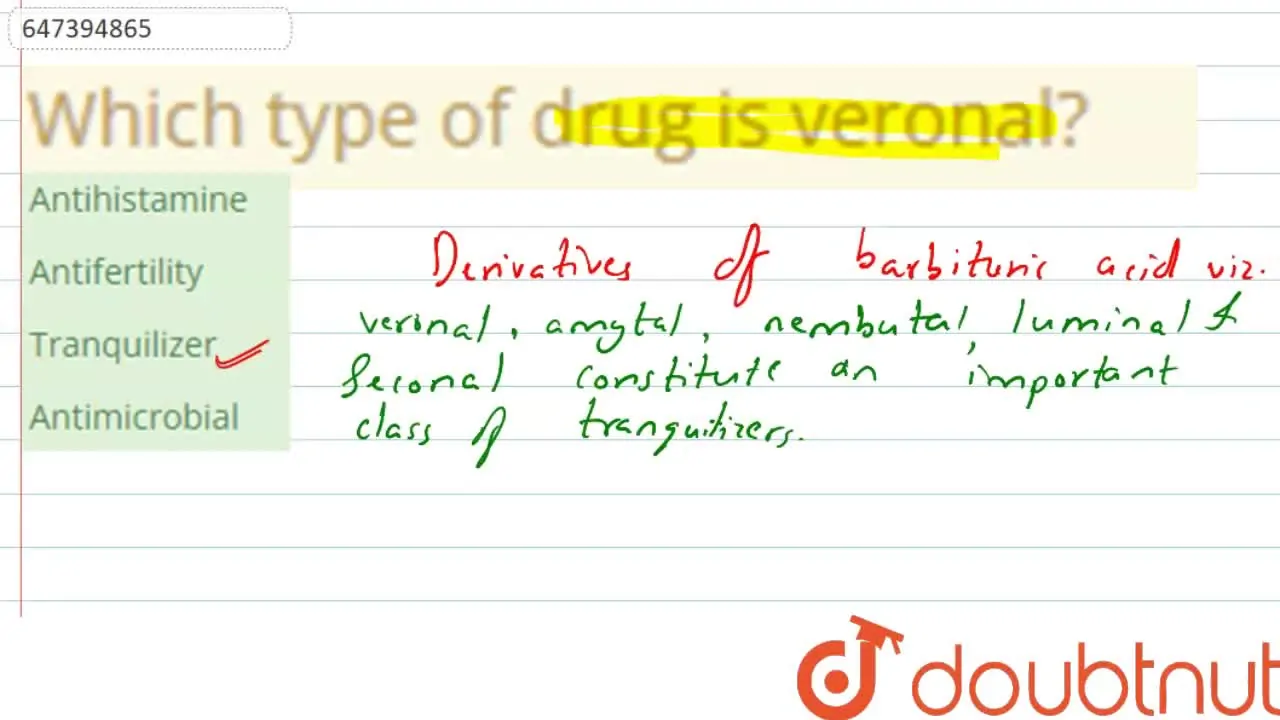 647394865
Which type of drug is veronal?
Antihistamine
Antifertility
Tranquilizer
Antimicrobial
Derivatives of barbituric acid viz.
veronal, amytal, nembutal, luminal &
Seconal constitute an important
class of tranquilizers.
doubtnut